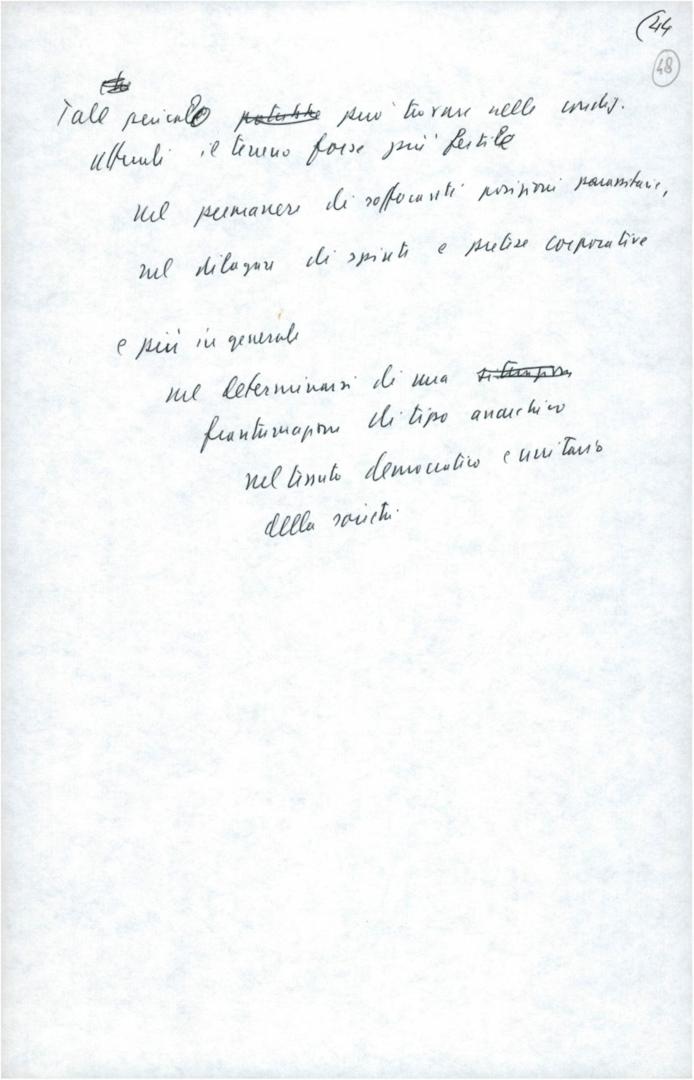 (44
48
Tale pericolo può trovare nelle condiz.
attuali il terreno forse più fertile
nel permanere di soffocanti posizioni parassitarie,
nel dilagare di spinte e pretese corporative
e più in generale
nel determinarsi di una
frantumazione di tipo anarchico
nel tessuto democratico e unitario
della società.